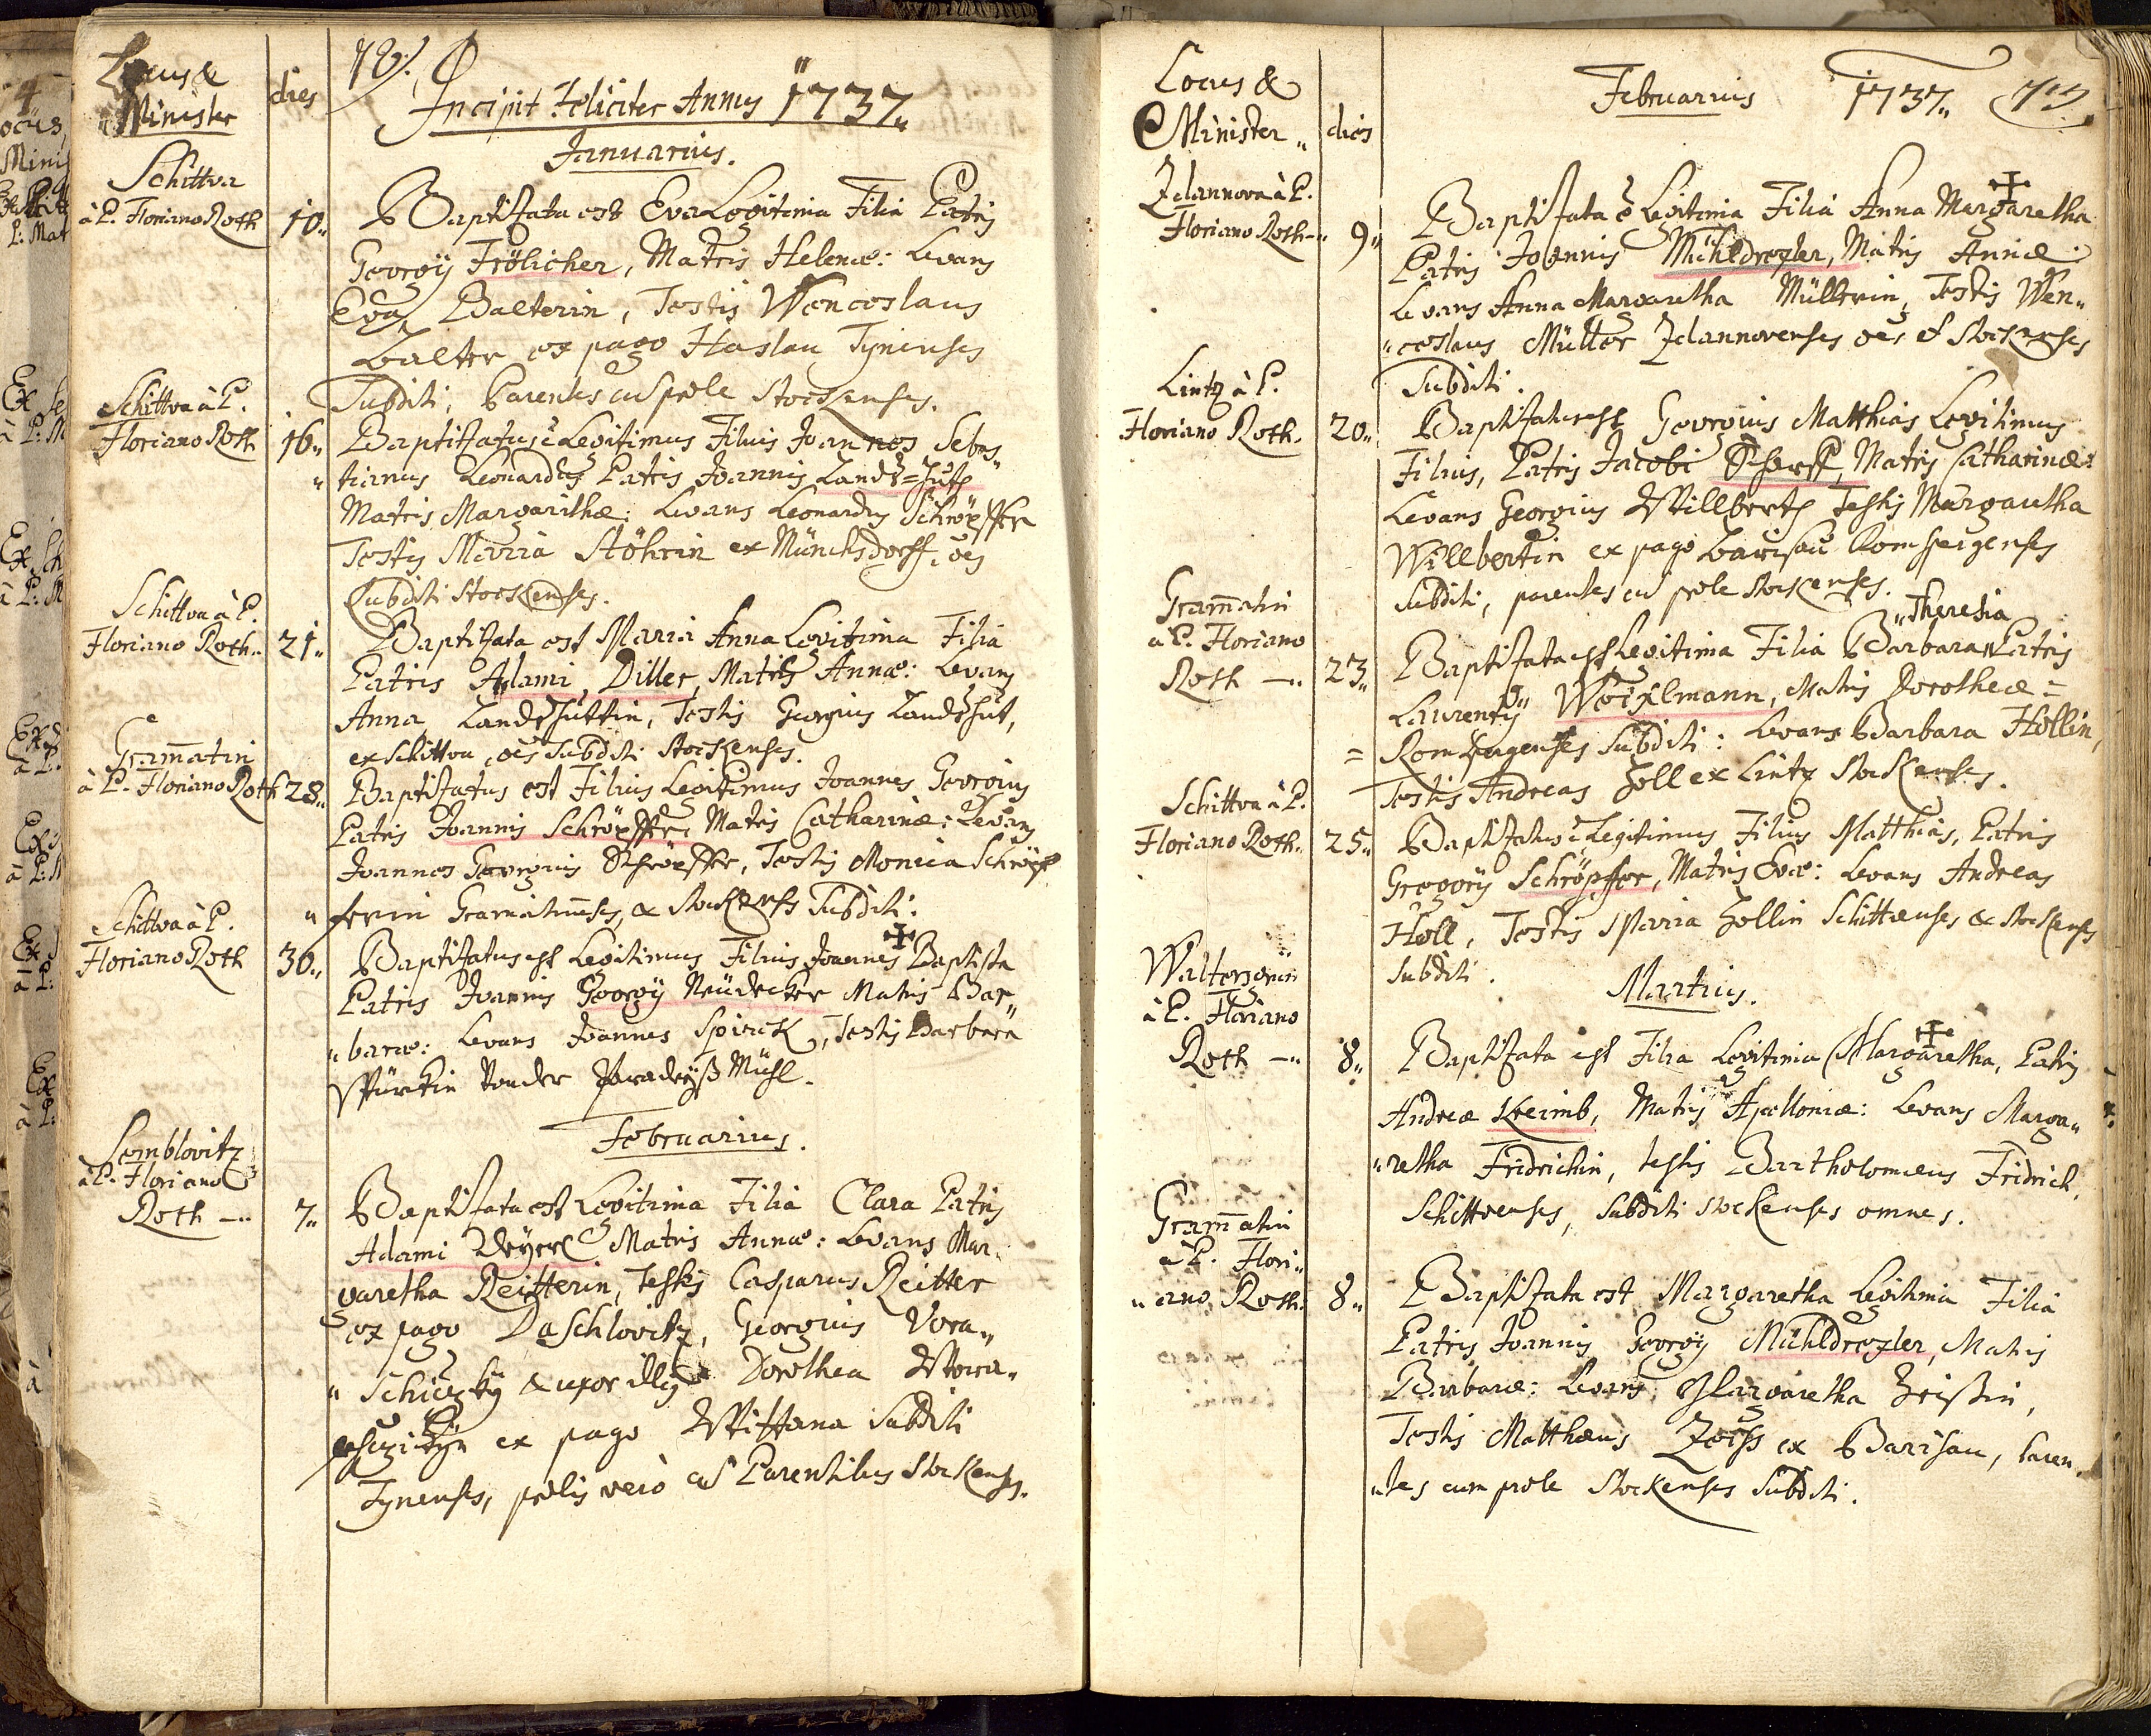 Locus &
Minister
dies
78.
Incipit Feliciter Annus 1737.
Januarius.
Schittva
à P. Floriano Roth
10.
Baptisata est Eva Legitima Filia Patris
Georgÿ Frölicher, Matris Helenæ: Levans
Eva Balterin, Testis Wenceslaus
Balter ex pago Haslau Tynenses
Subditi, Parentes cu prole Stockenses.
Schittva à P.
Floriano Roth
16.
Baptisatus ẽ Legitimus Filius Joannes Sebas„
„tianus Leonardus Patris Joannis Landt=Hüt
Matris Margarithæ: Levans Leonardus Schröpffer
Testis Maria Stöhrin ex Münchsdorff, oẽs
Subditi Stockenses.
Schittva à P.
Floriano Roth.
21.
Baptisata est Maria Anna Legitima Filia
Patris Adami Diller, Matris Annæ: Levans
Anna Landthüttin, Testis Georgius Landthüt,
ex Schittva, oẽs Subditi Stockenses.
Gram̄atin
à P. Floriano Roth
28.
Baptisatus est Filius Legitimus Joannes Georgius
Patris Joannis Schröpffer, Matris Catharinæ: Levans
Joannes Georgius Schröpffer, Testis Monica Schröpf
„ferin Gramatinenses, & Stockenses Subditi.
Schittva à P.
Floriano Roth
30.
Baptisatus est Legitimus Filius Joannes Baptista
Patris Joannis Georgÿ Neüdecker Matris Bar„
„baræ: Levans Joannes Spirck, Testis Barbara
Von der Paradeÿß Mühl.
Februarius.
Semblovitz
à P. Floriano
Roth
7.
Baptisata est Legitima Filia Clara Patris
Adami Matris Annæ: Levans Mar„
garetha Reitterin, Testis Casparus Reitter
ex pago Daschlovitz, Georgius Vora„
„Schiczkÿ & uxor illius Dorothea Wora„
ex pago Wittana Subditi
Tynenses, prolis verò cu Parentibus Stockenses.
Locus &
Minister
dies
Februarius 1737. 79
Zelannova à P.
Floriano Roth
9.
Baptisata ẽ Legitima Filia Anna Margaretha
Patris Joannis Mühldrexler, Matris Annæ:
Levans Anna Margaretha Müllerin, Testis Wen„
„ceslaus Müller Zelannovenses oẽs & Stockenses
Subditi.
Lintz à P.
Floriano Roth.
20.
Baptisatus est Georgius Matthias Legitimus
Filius, Patris Jacobi Scherff, Matris Catharinæ:
Levans Georgius Willbert, Testis Margaretha
Willbertin ex pago Barisau Ronspergenses
Subditi, parentes cu prole Stockenses.
Gram̄atin
à P. Floriano
Roth
23.
„Theresia
Baptisata est Legitima Filia Barbara Patris
Laurentÿ Weixlmann, Matris Dorotheæ =
= Ronspergenses Subditi: Levans Barbara Hollin,
Testis Andreas Holl ex Lintz Stockenses.
Schittva à P.
Floriano Roth.
25.
Baptisatus ẽ Legitimus Filius Matthias, Patris
Gregorÿ Schröpffer, Matris Evæ: Levans Andreas
Holl, Testis Maria Hollin Schittvenses & Stockenses
Subditi.
Martius.
Waltersgrün
à P. Floriano
Roth
8.
Baptisata est Filia Legitima Margaretha, Patris
Andreæ Kreimb, Matris Apolloniæ: Levans Marga„
„retha Fridrichin, testis Bartholomæus Fridrich,
Schittvenses, Subditi Stockenses omnes.
Gram̄atin
à P. Flori„
„ano Roth.
8.
Baptisata est Margaretha Legitima Filia
Patris Joannis Georgÿ Mühldrexler, Matris
Barbaræ: Levans Margaretha Zeissin,
Testis Matthæus Zeiss ex Barisau, Paren„
„tes cum prole Stockenses Subditi.